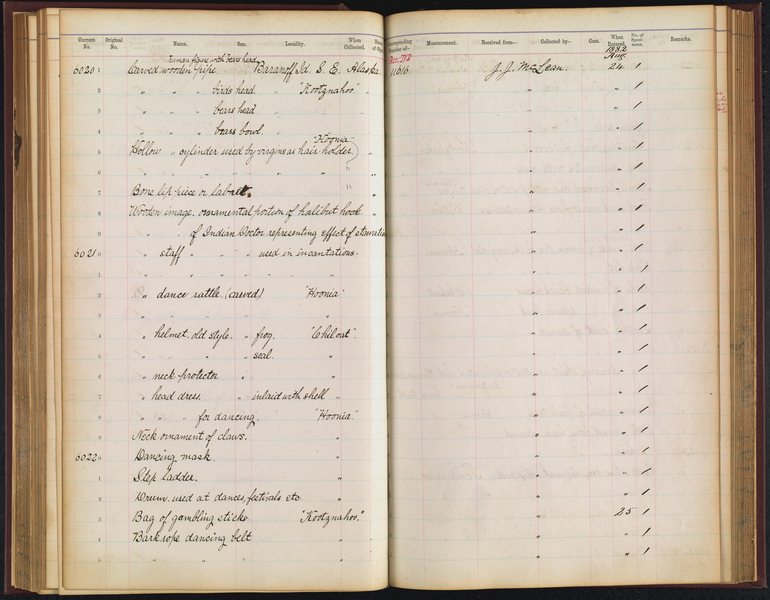 Current No. Original No. Name. Sex. Locality. When Collected.
Corresponding Number of— Measurement. Received from— Collected by— Cost. When Entered. No. of Speci- mens. Remarks.
1882
Human figure with bears head
60201 Carved wooden pipe. Baranoff Id. S. E. Alaska 11016 J. J. McLean. Aug. 24 1
2 " " " birds head. "Kootznahoo" " " " 1
3 " " " bears head " " " 1
4 " " " bears bowl. " " " 1
5 Hollow " cylinder used by virgins as hair-holder) "Hoonia" " " " 1
6 " " " " " " " " " 1
7 Bone lip piece or labret. " " " 1
8 Wooden image. ornamental portion of halibut hook. " " 1
9 " " of Indian Doctor representing effect of starvation " " 1
60210 " staff " " " used in incantations. " " 1
1 " " " " " " " " 1
2 " dance rattle. (carved) "Hoonia" " " 1
3 " " " " " " 1
4 " helmet. old style. " frog. "Chilcat". " " 1
5 " " " " seal. " " " 1
6 " neck protector " " " " 1
7 " head dress. " inlaid with shell " " " 1
8 " " for dancing. "Hoonia" " " 1
9 Neck ornament of claws. " " " 1
60220 Dancing mask. " " " 1
1 Step ladder. " " " 1
2 Drum, used at dances, festivals etc. " " " 1
3 Bag of gambling sticks "Kootznahoo." " 25 1
4 Bark rope dancing belt " " " 1
5 " " " " " " " 1